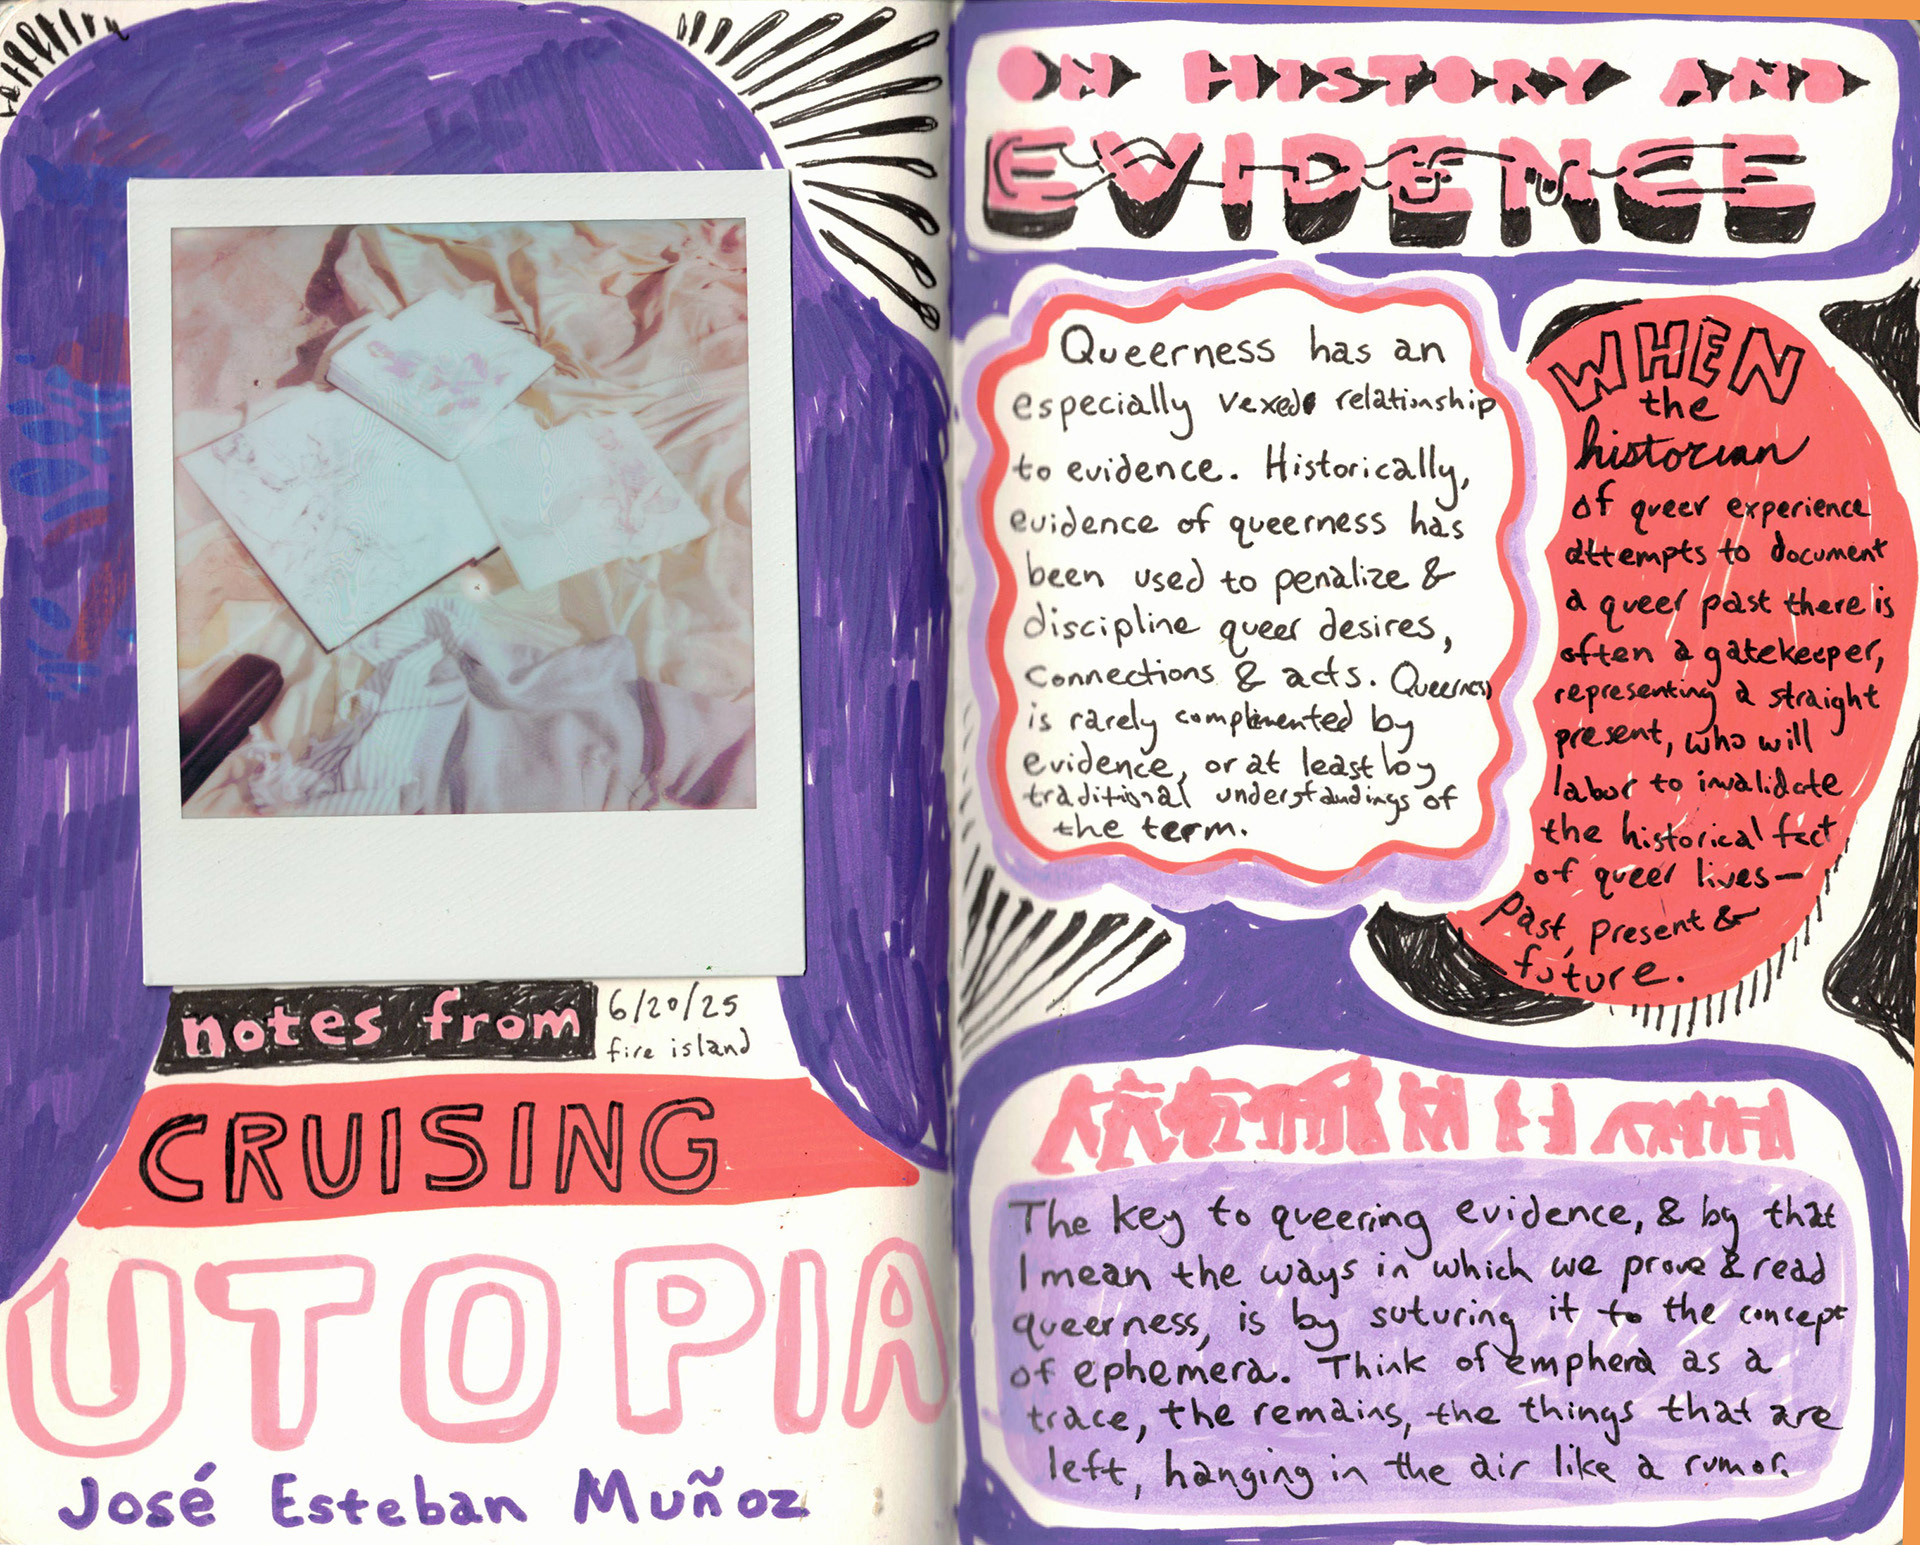 notes from
6/20/25
fire island
CRUISING
UTOPIA
José Esteban Muñoz
ON HISTORY AND
EVIDENCE
Queerness has an
especially vexed relationship
to evidence. Historically,
evidence of queerness has
been used to penalize &
discipline queer desires,
connections & acts. Queerness
is rarely complimented by
evidence, or at least by
traditional understandings of
the term.
WHEN
the
historian
of queer experience
attempts to document
a queer past there is
often a gatekeeper,
representing a straight
present, who will
labor to invalidate
the historical fact
of queer lives—
past, present &
future.
The key to queering evidence, & by that
I mean the ways in which we prove & read
queerness, is by suturing it to the concept
of ephemera. Think of emphera as a
trace, the remains, the things that are
left, hanging in the air like a rumor.